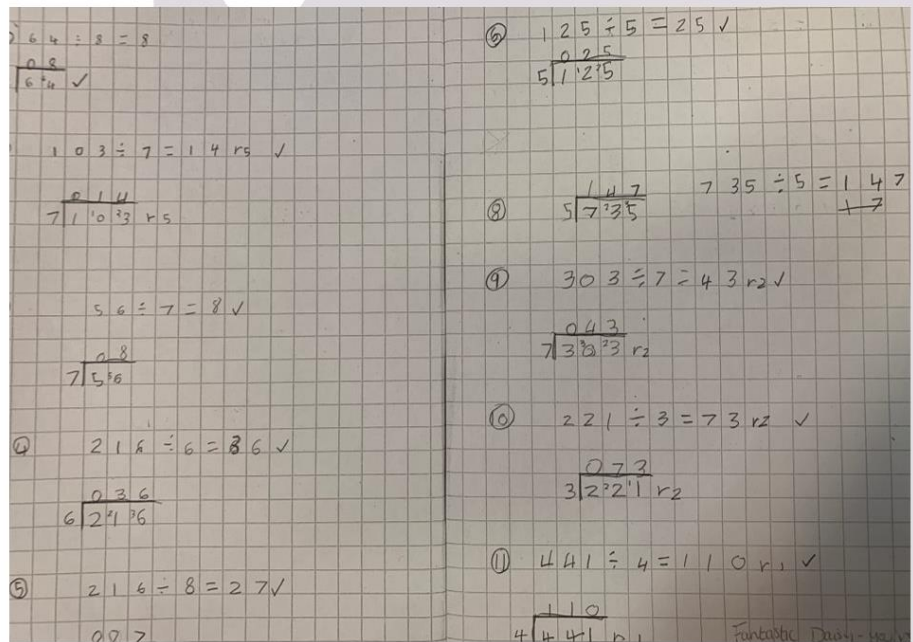 64 ÷ 8 = 8
08
6 4 ✓
103 ÷ 7 = 14 r5 ✓
014
7 1 ¹0 ³3 r5
56 ÷ 7 = 8 ✓
08
7 5 ⁵6
④ 216 ÷ 6 = 36 ✓
036
6 2 ²1 ³6
⑤ 216 ÷ 8 = 27 ✓
⑥ 125 ÷ 5 = 25 ✓
025
5 1 ¹2 ²5
⑧ 735 ÷ 5 = 147
147
5 7 ²3 ³5
17
⑨ 303 ÷ 7 = 43 r2 ✓
043
7 3 ³0 ²3 r2
⑩ 221 ÷ 3 = 73 r2 ✓
073
3 2 ²2 ¹1 r2
⑪ 441 ÷ 4 = 110 r1 ✓
110
4 441 r1
Fantastic